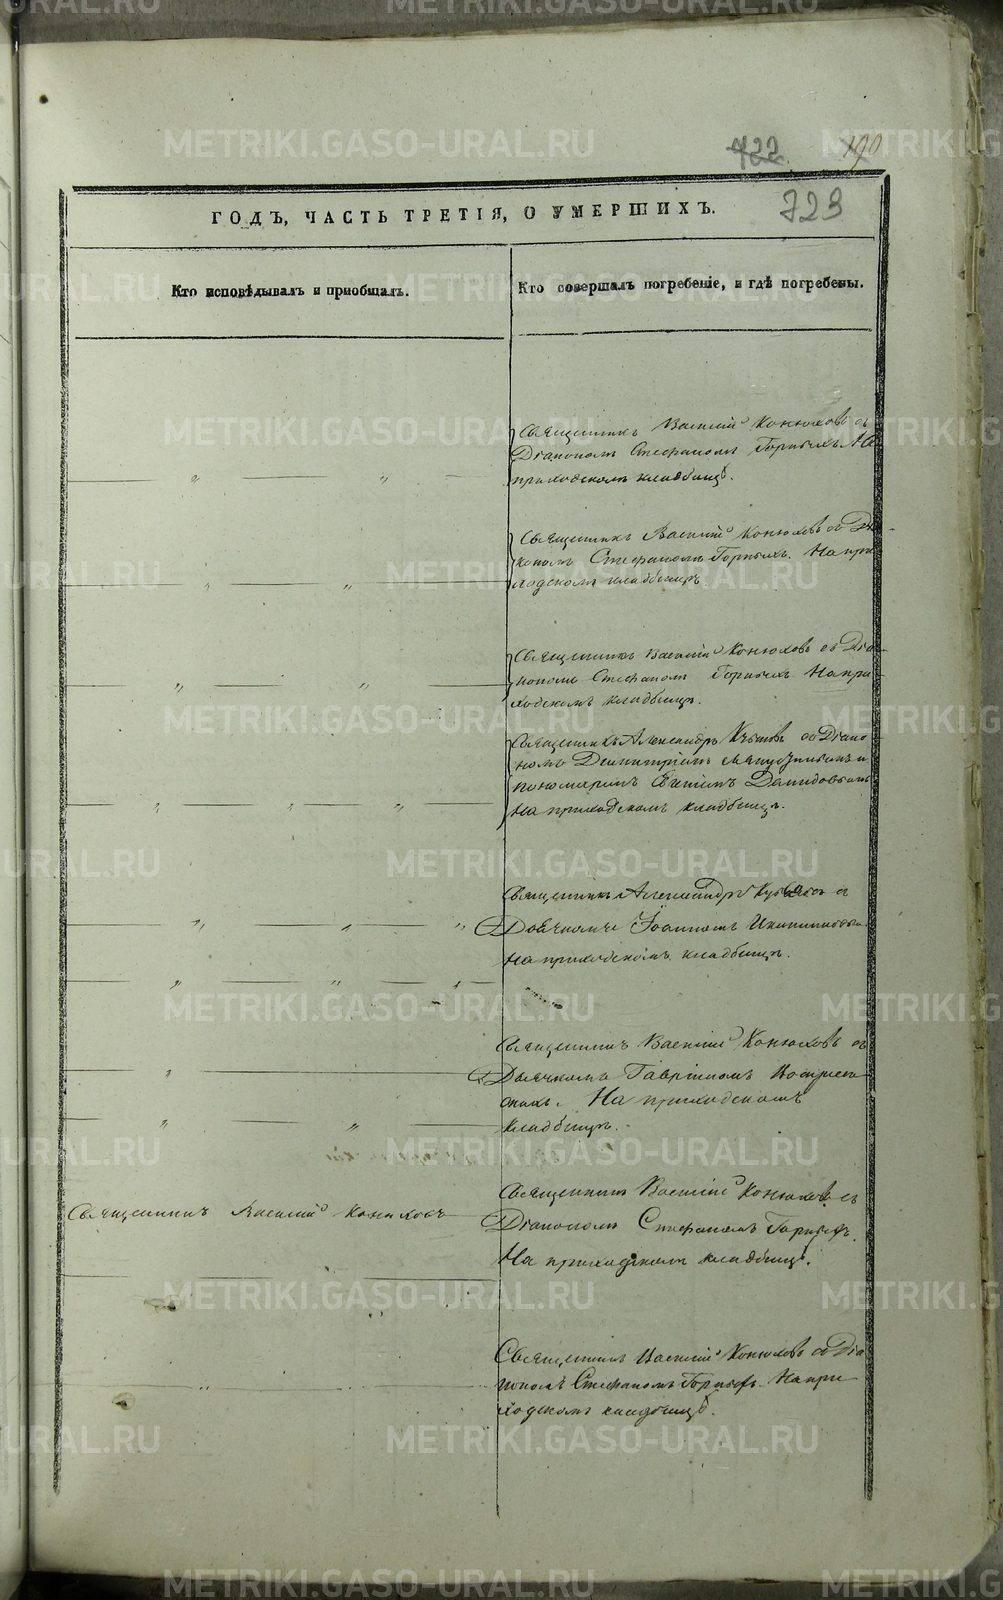 722
190
723
ГОДЪ, ЧАСТЬ ТРЕТІЯ, О УМЕРШИХЪ.
Кто исповѣдывалъ и приобщалъ.
Кто совершалъ погребеніе, и гдѣ погребены.
Священникъ Василій Конюховъ съ
Діакономъ Стефаномъ Горныхъ На
приходскомъ кладбищѣ.
Священникъ Василій Конюховъ съ Діа-
кономъ Стефаномъ Горныхъ. На при
ходскомъ кладбищѣ.
Священникъ Василій Конюховъ съ Діа-
кономъ Стефаномъ Горныхъ На при
ходскомъ кладбищѣ.
Священникъ Александръ съ Діако
номъ Димитріемъ и
пономаремъ Давидовымъ
На приходскомъ кладбищѣ.
Священникъ Александръ съ
Іоанномъ
На приходскомъ кладбищѣ.
Священникъ Василій Конюховъ съ
Дьячкомъ Гавріиломъ
На приходскомъ
кладбищѣ.
Священникъ Василій Конюховъ
Священникъ Василій Конюховъ съ
Діакономъ Стефаномъ Горныхъ.
На приходскомъ кладбищѣ.
Священникъ Василій Конюховъ съ Діа
кономъ Стефаномъ Горныхъ. На при
ходскомъ кладбищѣ.
METRIKI.GASO-URAL.RU